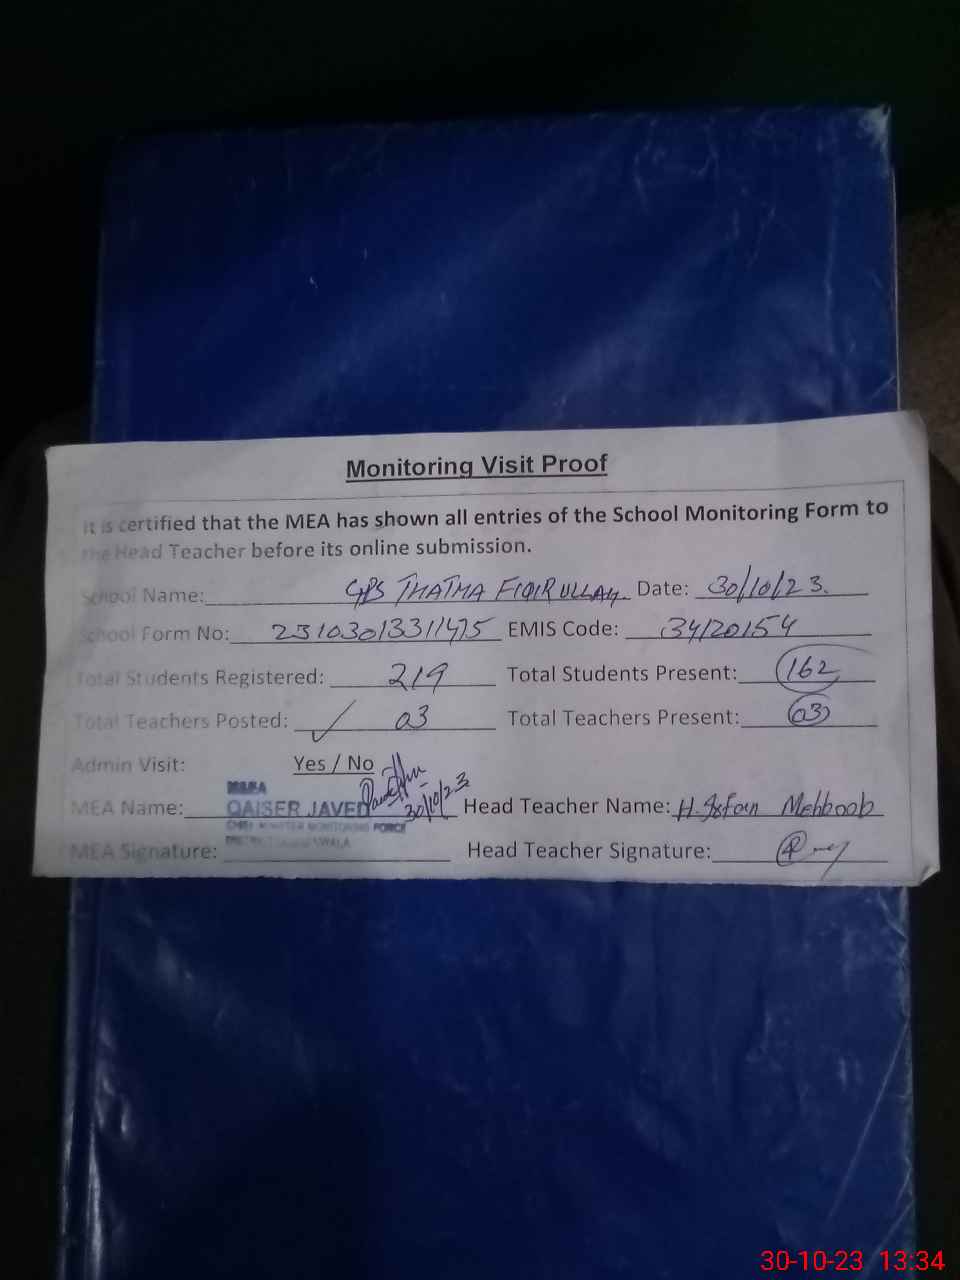 Monitoring Visit Proof
It is certified that the MEA has shown all entries of the School Monitoring Form to
the Head Teacher before its online submission.
School Name: GPS THATHA FIQIRULLAH Date: 30/10/23.
School Form No: 23103013311475 EMIS Code: 34120154
Total Students Registered: 219 Total Students Present: 162
Total Teachers Posted: ✓ 03 Total Teachers Present: 03
Admin Visit: Yes / No
MEA Name: QAISER JAVED 30/10/23 Head Teacher Name: H. Mehboob
CHIEF MINISTER MONITORING FORCE
MEA Signature: Head Teacher Signature:
30-10-23 13:34